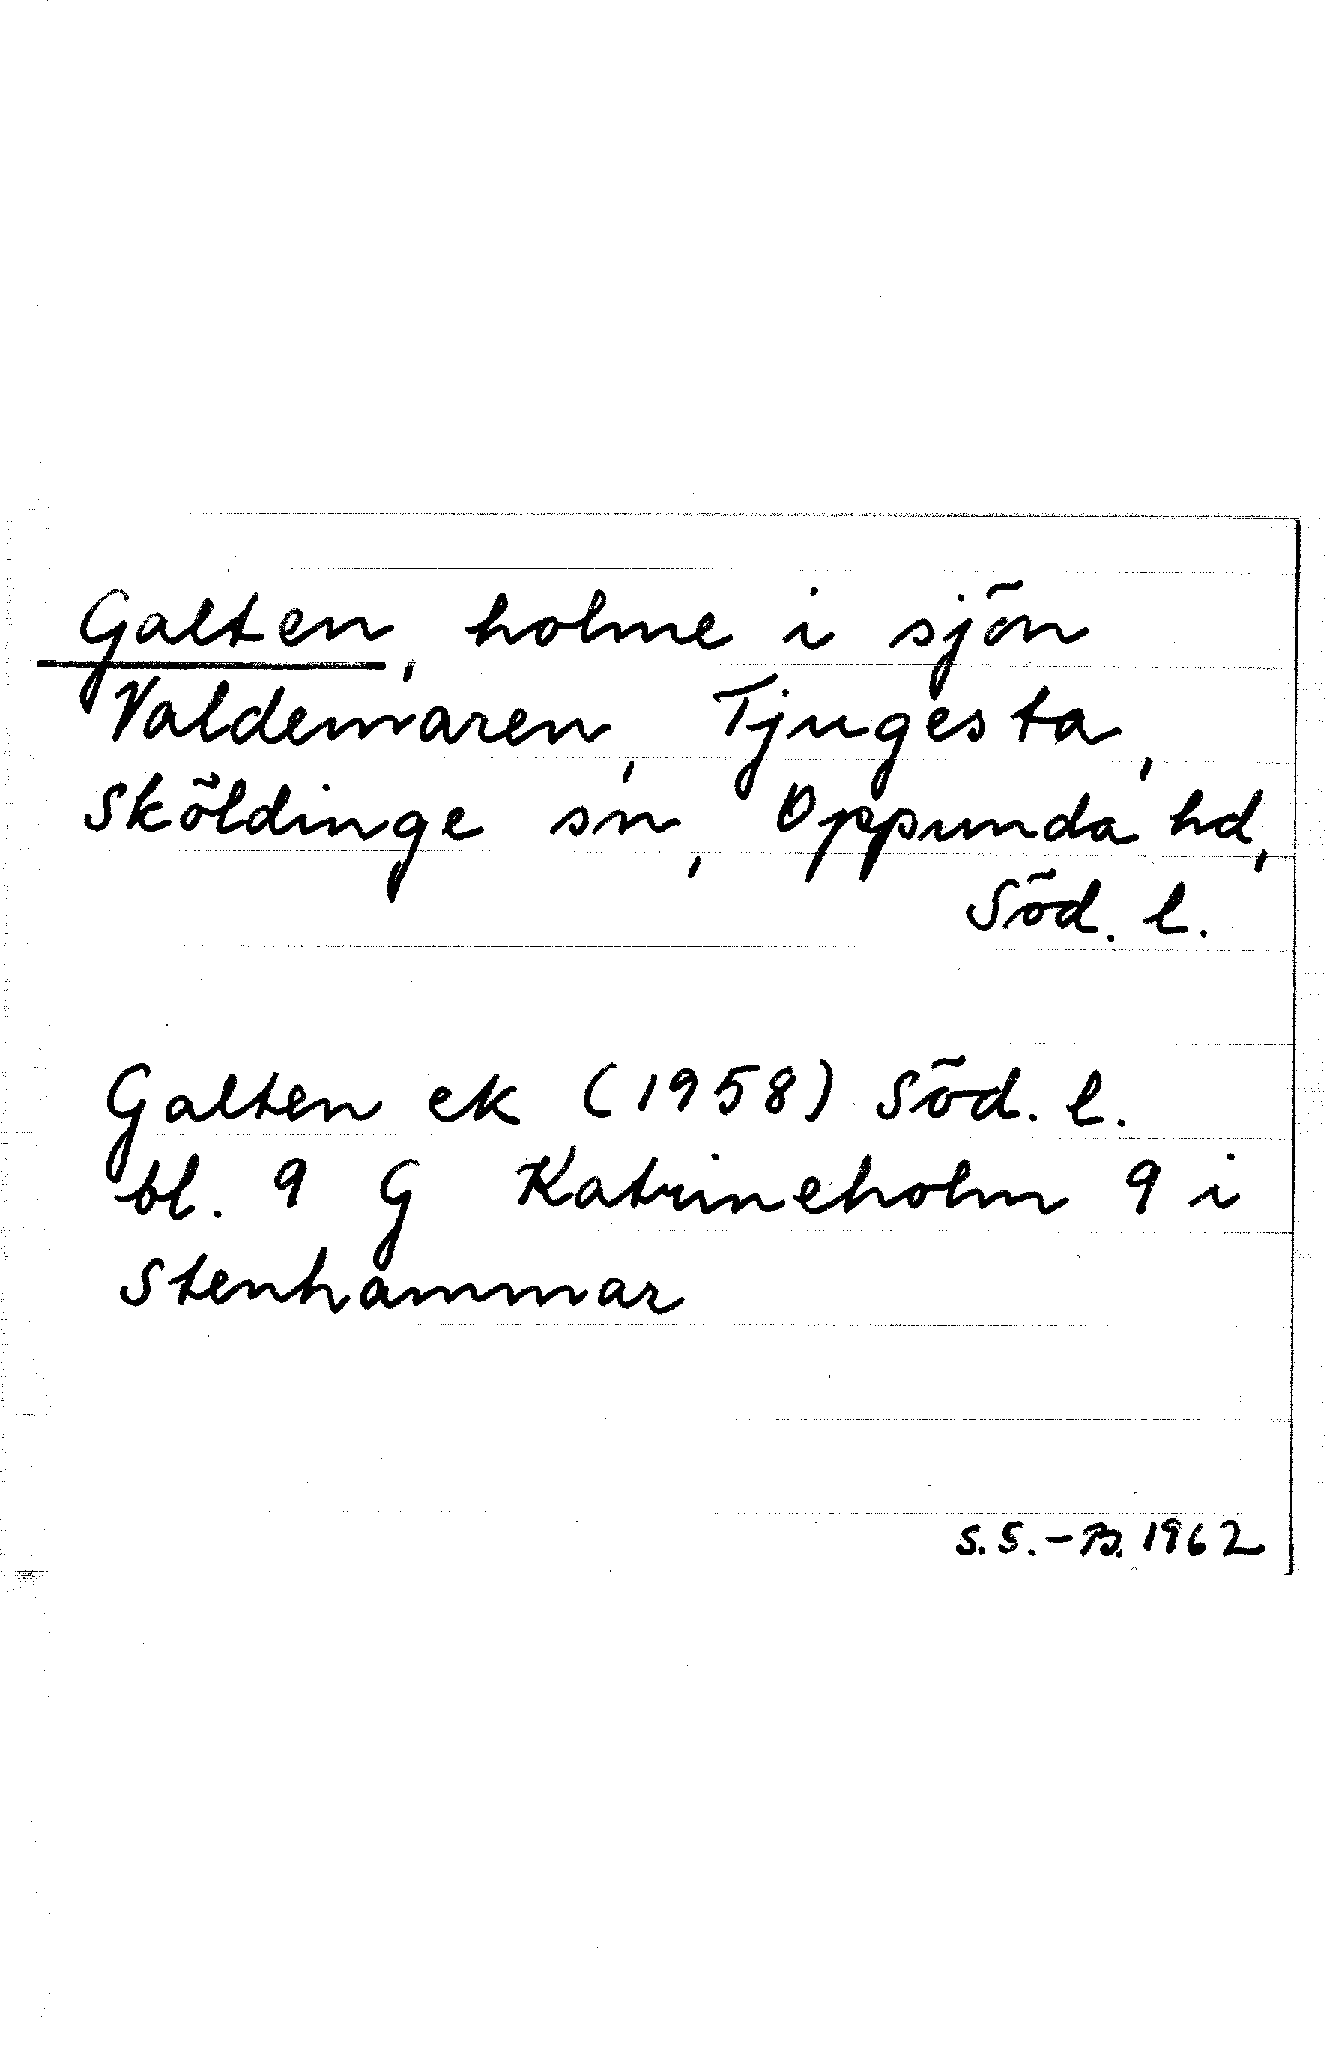 Galten, holme i sjön
Valdemaren, Tjugesta,
Sköldinge sn, Oppunda hd,
Söd. l.
Galten ek (1958) Söd. l.
bl. 9 G Katrineholm 9 i
Stenhammar
S. S.-B. 1962